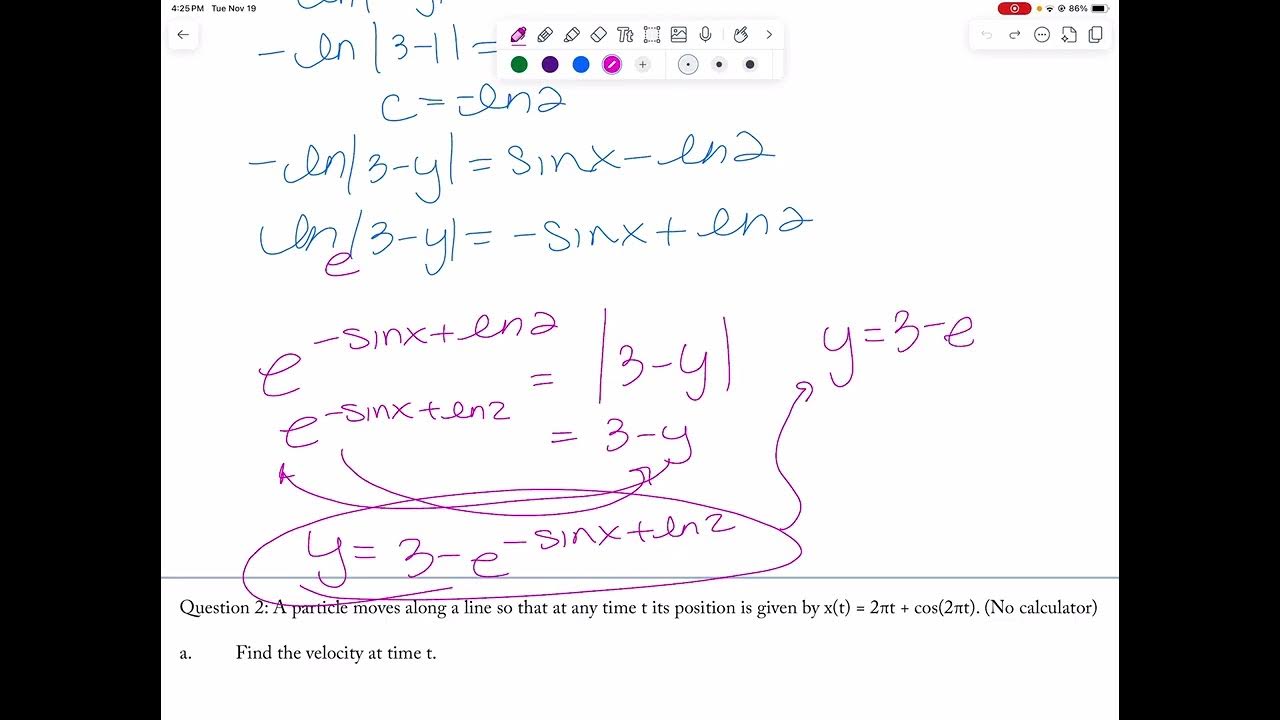 4:25 PM Tue Nov 19
86%
-ln|3-1| =
c = -ln2
-ln|3-y| = sinx - ln2
ln|3-y| = -sinx + ln2
e
e^{-sinx+ln2} = |3-y|
y = 3-e
e^{-sinx+ln2} = 3-y
y = 3-e^{-sinx+ln2}
Question 2: A particle moves along a line so that at any time t its position is given by x(t) = 2πt + cos(2πt). (No calculator)
a. Find the velocity at time t.